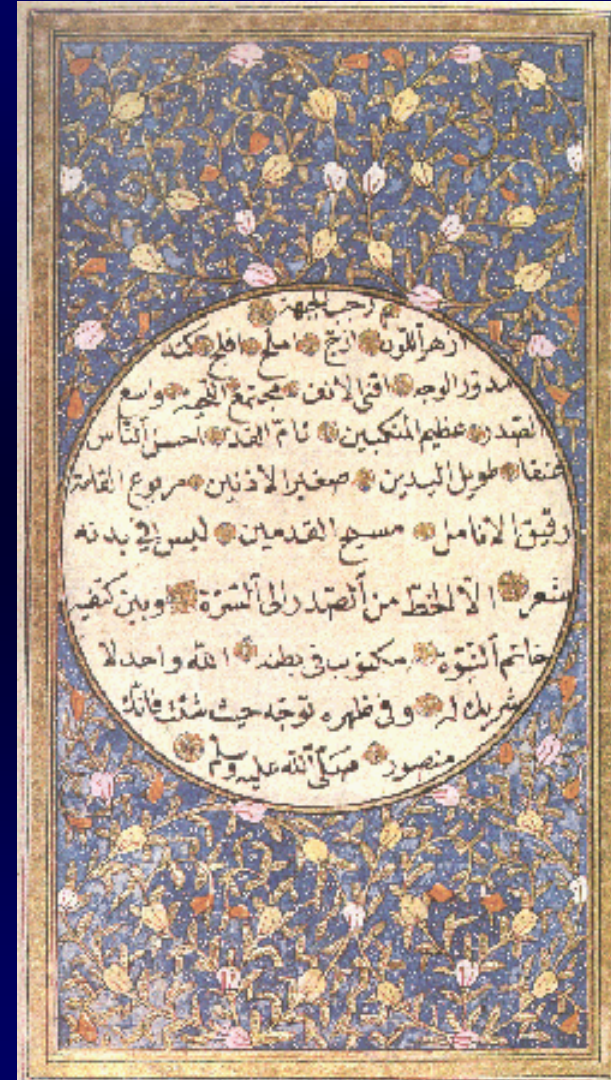 رحب الجبهة
ازهر اللون ازج املح افلج كنه
مدور الوجه اقنى الانف مجتمع اللحية واسع
الصدر عظيم المنكبين تام القد احسن الناس
عنقا طويل اليدين صغير الاذنين مربوع القامة
رقيق الانامل مسيح القدمين ليس في بدنه
شعر الا الخط من الصدر الى السرة وبين كتفيه
خاتم النبوة مكتوب في بطنه الله واحد لا
شريك له وفي ظهره توجه حيث شئت فانك
منصور صلى الله عليه وسلم